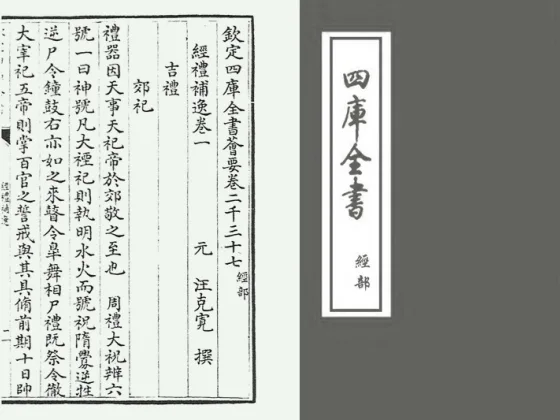 欽定四庫全書薈要卷二千三十七 經部
經禮補逸卷一
元 汪克寬 撰
吉禮
郊祀
禮器因天事天祀帝於郊敬之至也 周禮大祝辨六
號一曰神號凡大禋祀則執明水火而號祝隋釁逆牲
逆尸令鐘鼓右亦如之來瞽令皐舞相尸禮既祭令徹
大宰祀五帝則掌百官之誓戒與其具脩前期十日帥
四庫全書
經部